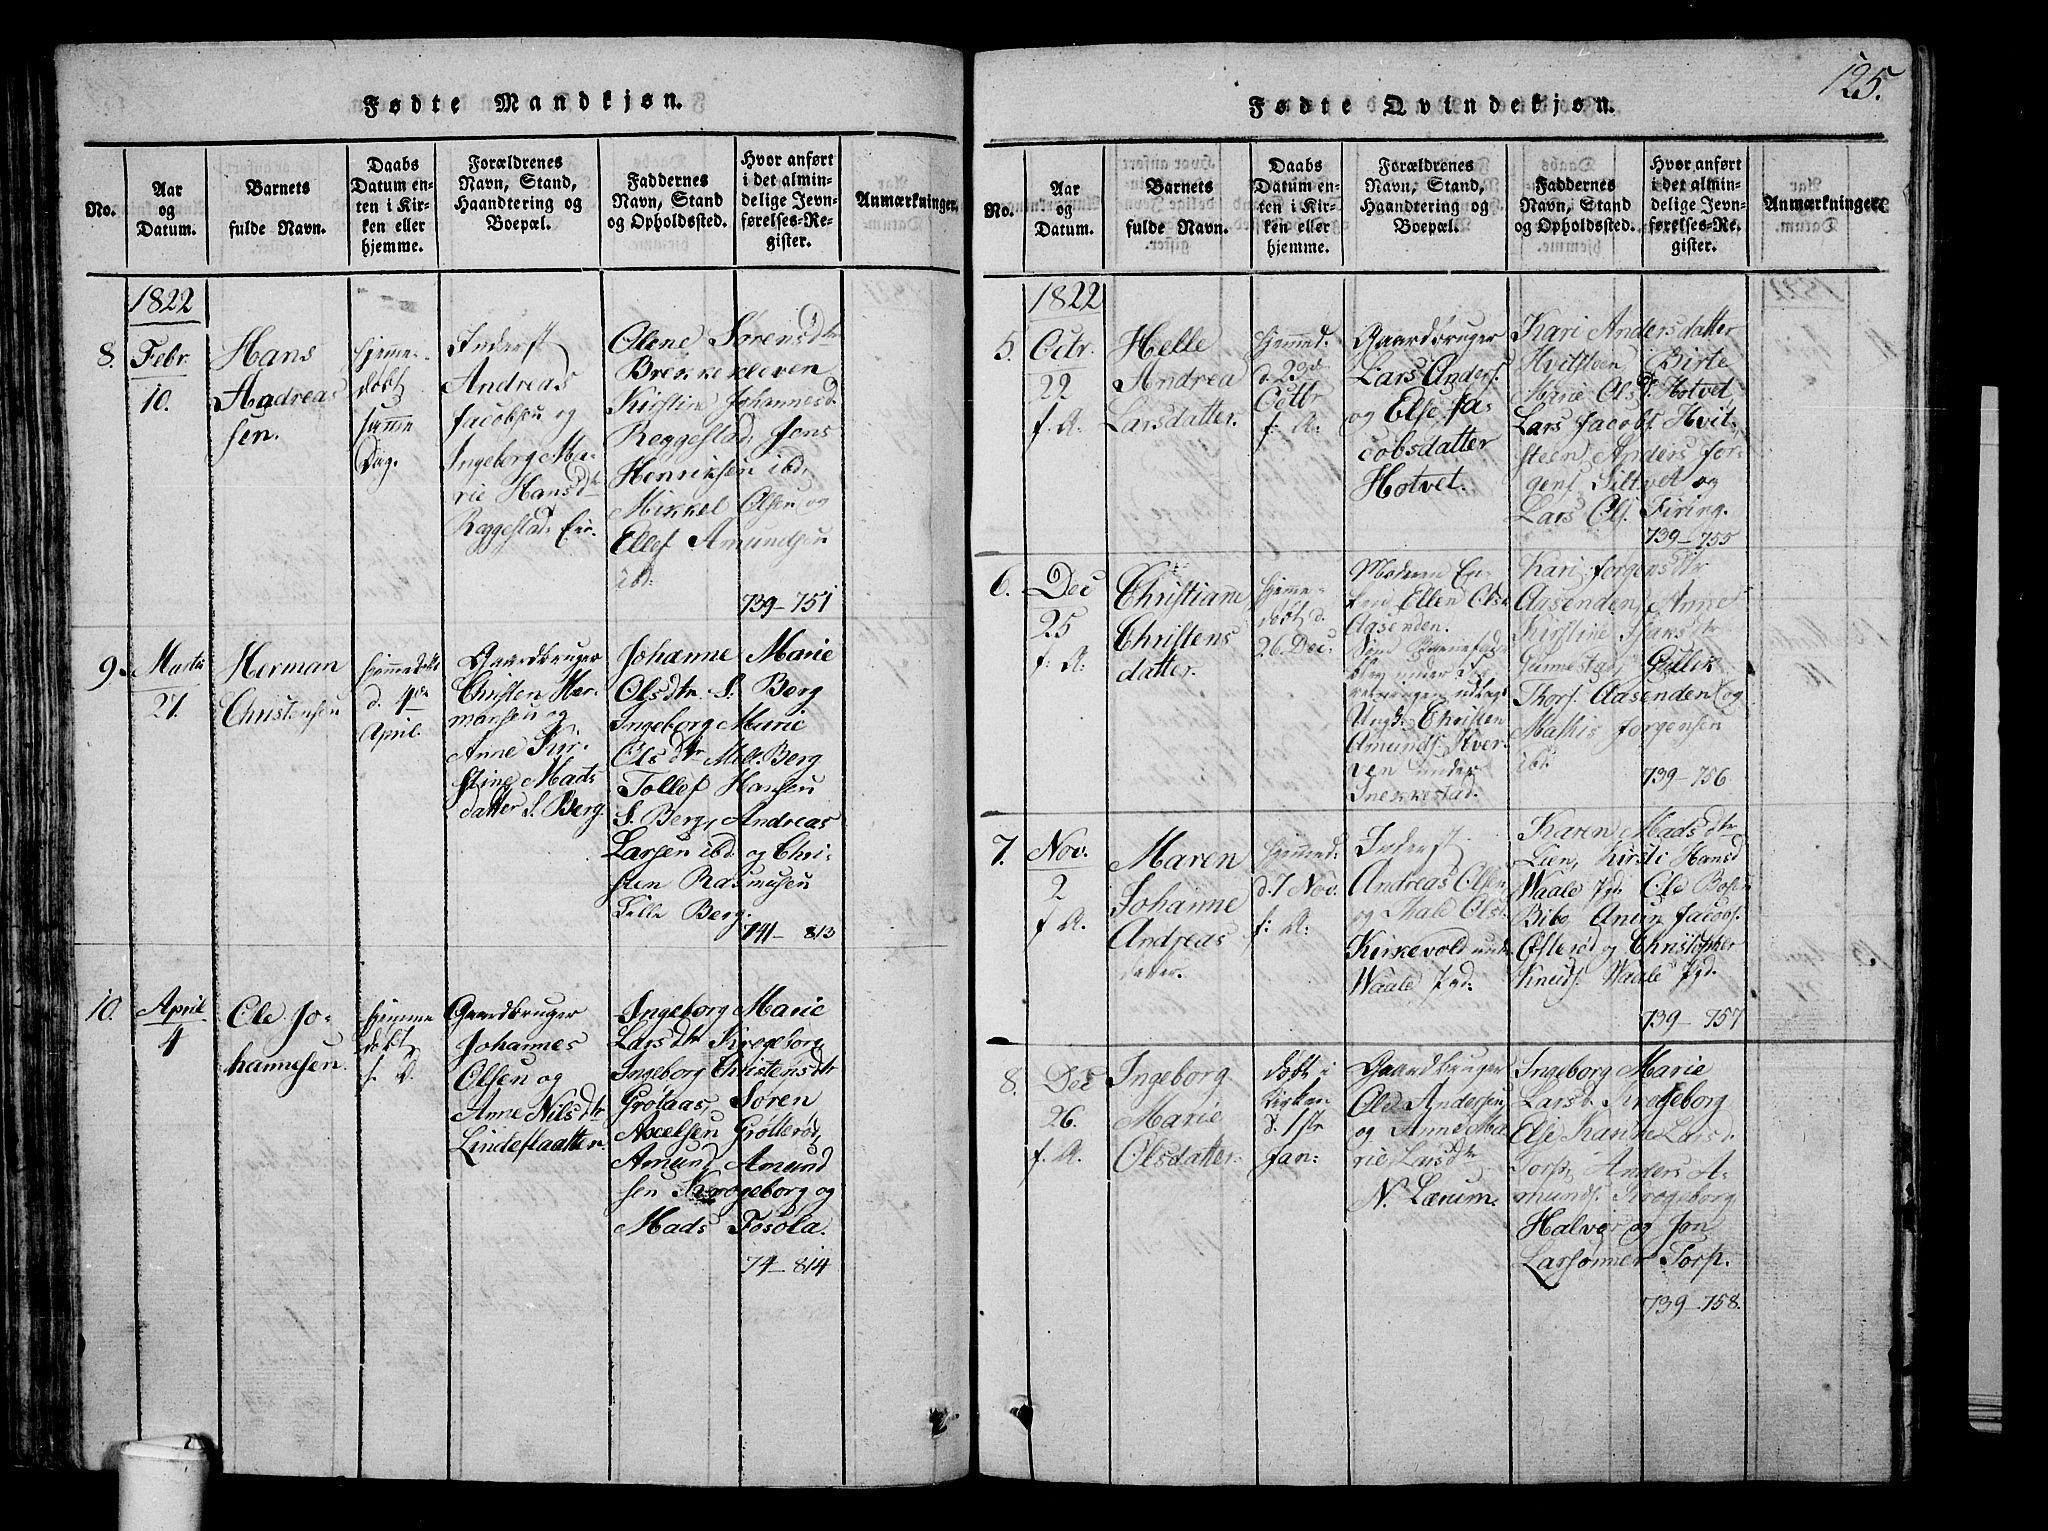 Fødte Mandkjøn.
No.
Aar
og
Datum.
Barnets
fulde Navn.
Daabs
Datum en-
ten i Kir-
ken eller
hjemme.
Forældrenes
Navn, Stand,
Haandtering og
Boepæl.
Faddernes
Navn, Stand
og Opholdssted.
Hvor anført
i det almin-
delige Jevn-
førelses-Re-
gister.
Anmærkninger.
1822
8.
Febr.
10.
Hans
Andrea
sen.
hjemme-
døbt
samme
Dag.
Inderst
Andreas
Jacobsen og
Ingeborg Ma-
rie Hansdtr
Reggestad
Olene Sørensdtr
Brekkekleven
Kirstine Johannesd.
Reggestad, Jens
Henriksen ibd.
Mikkel Olsen og
Ellef Amundsen
ibd:
739-751
9.
Martii
27.
Herman
Christensen
hjemmedøbt
d. 4de
April.
Gaardbruger
Christen Her-
mansen og
Anne Kir-
stine Mads
datter S. Berg.
Johanne Marie
Olsdtr. S. Berg
Ingeborg Marie
Olsdtr Mel. Berg
Tollef Hansen
S. Berg, Andreas
Larsen ibd og Chri-
sten Rasmusen
Lille Berg.
741-813
10.
April
4
Ole Jo-
hannesen.
hjemme
døbt
s. D.
Gaardbruger
Johannes
Olsen og
Anne Nilsdtr
Lindeflaatten
Ingeborg Marie
Larsdtr Krogeborg,
Ingeborg Christensdtr
Grotaas, Søren
Axelsen Grøtterød,
Amund Amund
sen Krogeborg og
Mads Fosøla.
74-814
125.
Fødte Qvindekjøn.
No.
Aar
og
Datum.
Barnets
fulde Navn.
Daabs
Datum en-
ten i Kir-
ken eller
hjemme.
Forældrenes
Navn, Stand,
Haandtering og
Boepæl.
Faddernes
Navn, Stand
og Opholdssted.
Hvor anført
i det almin-
delige Jevn-
førelses-Re-
gister.
Anmærkninger
1822
5.
Octr.
22
f. A.
Helle
Andrea
Larsdatter.
hjemmed.
d. 23d
Octbr
f. A:
Gaardbruger
Lars Anders.
og Else Ja-
cobsdatter
Hotvet.
Kari Andersdatter
Hvitsteen Birte
Marie Olsd. Hotvet,
Lars Jacobs. Hvit-
steen Anders Jør-
gens. Siltvet og
Lars Ols. Firing.
739-755
6.
Dec
25
f: A:
Christiane
Christens
datter.
hjemme-
døbt d.
26 Dec:
Moderen En-
ken Ellen Olsd.
Aasenden.
Som Barnefader
blev under
udlagt
Ungk. Christen
Amunds. Kver-
ven under
Snekkestad.
Kari Jørgensdtr
Aasenden, Anne
Kirstine Hansdtr
Gunnestad, Gullik
Thors. Aasenden og
Mathis Jørgensen
ibd.
739-756
7.
Nov.
2
f A.
Maren
Johanne
Andreas
datter.
hjemmed.
d. 7 Nov.
f: A:
Inderst
Andreas Olsen
og Thale Olsd.
Kirkevold unde
Waale Pgd:
Karen Madsdtr
Lien, Kirsti Hansd
Waale Pgd. Ole Bosen
Bibo Jacobs.
Østerød og Christopher
Knuds. Waale Pgd.
739-757
8.
Dec
26.
f. A.
Ingeborg
Marie
Olsdatter.
døbt i
Kirken
d. 1ste
Jan:
Gaardbruger
Ole Andersen,
og Anne Ma
rie Larsdtr
N. Lærum.
Ingeborg Marie
Larsd. Krogeborg
Else Karine Larsd.
Torp, Anders A-
munds. Krogeborg
Halvor og Jon
Larsønner Torp.
739-758.